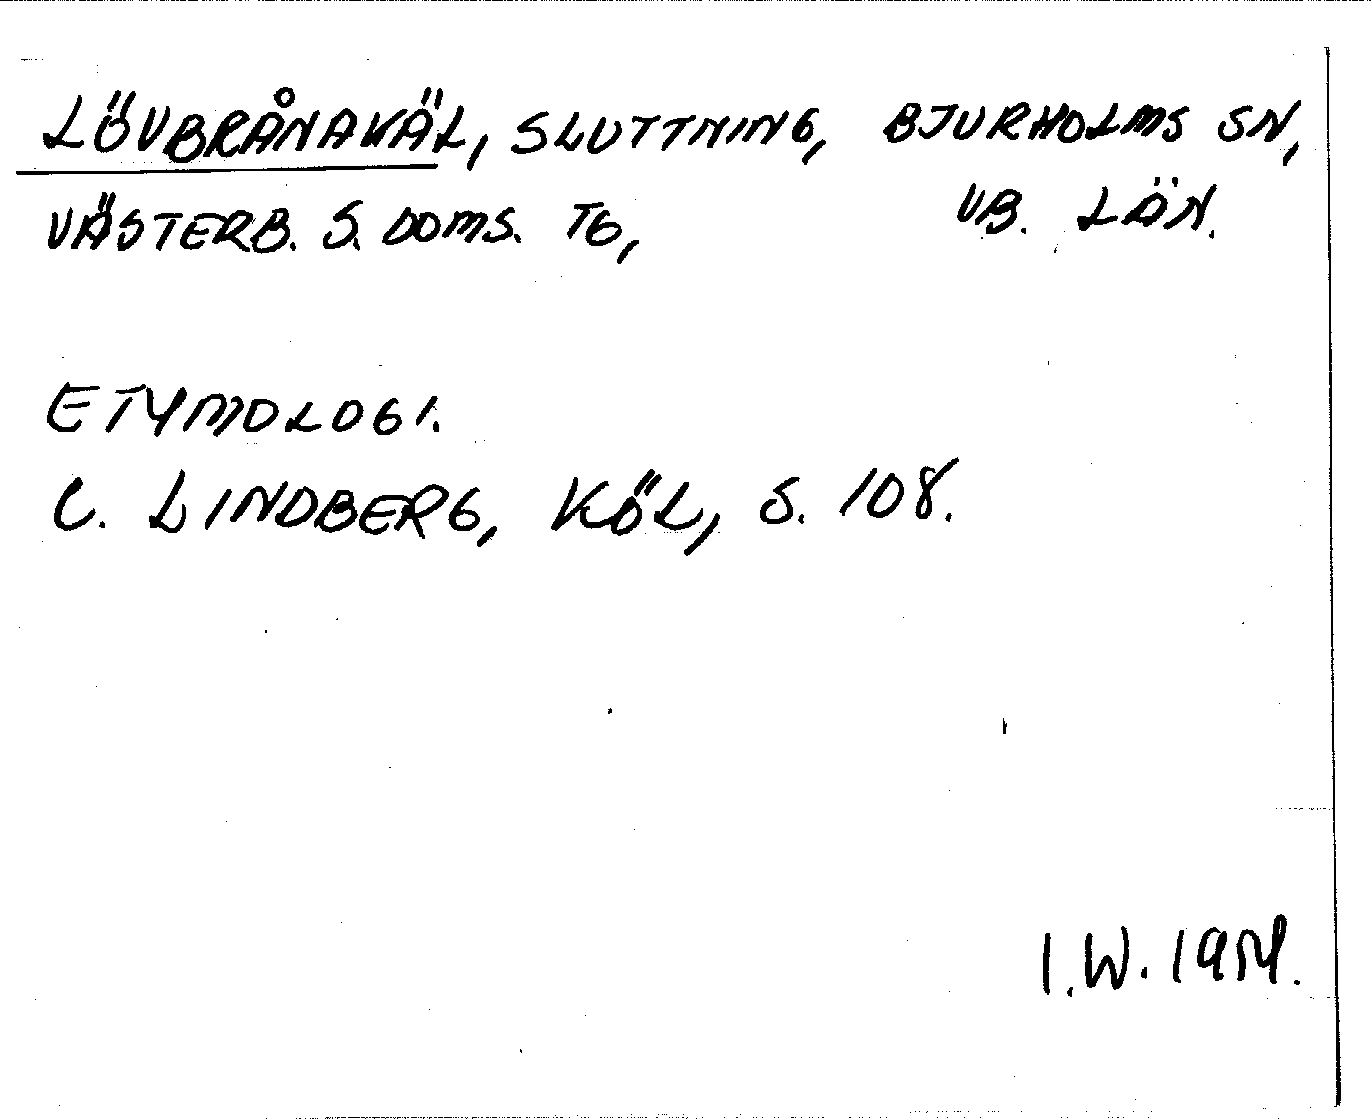 LÖVBRÅNAKÄL, SLUTTNING, BJURHOLMS SN,
VÄSTERB. S. DOMS. TG, VB. LÄN.
ETYMOLOGI.
C. LINDBERG, KÖL, S. 108.
I.W.